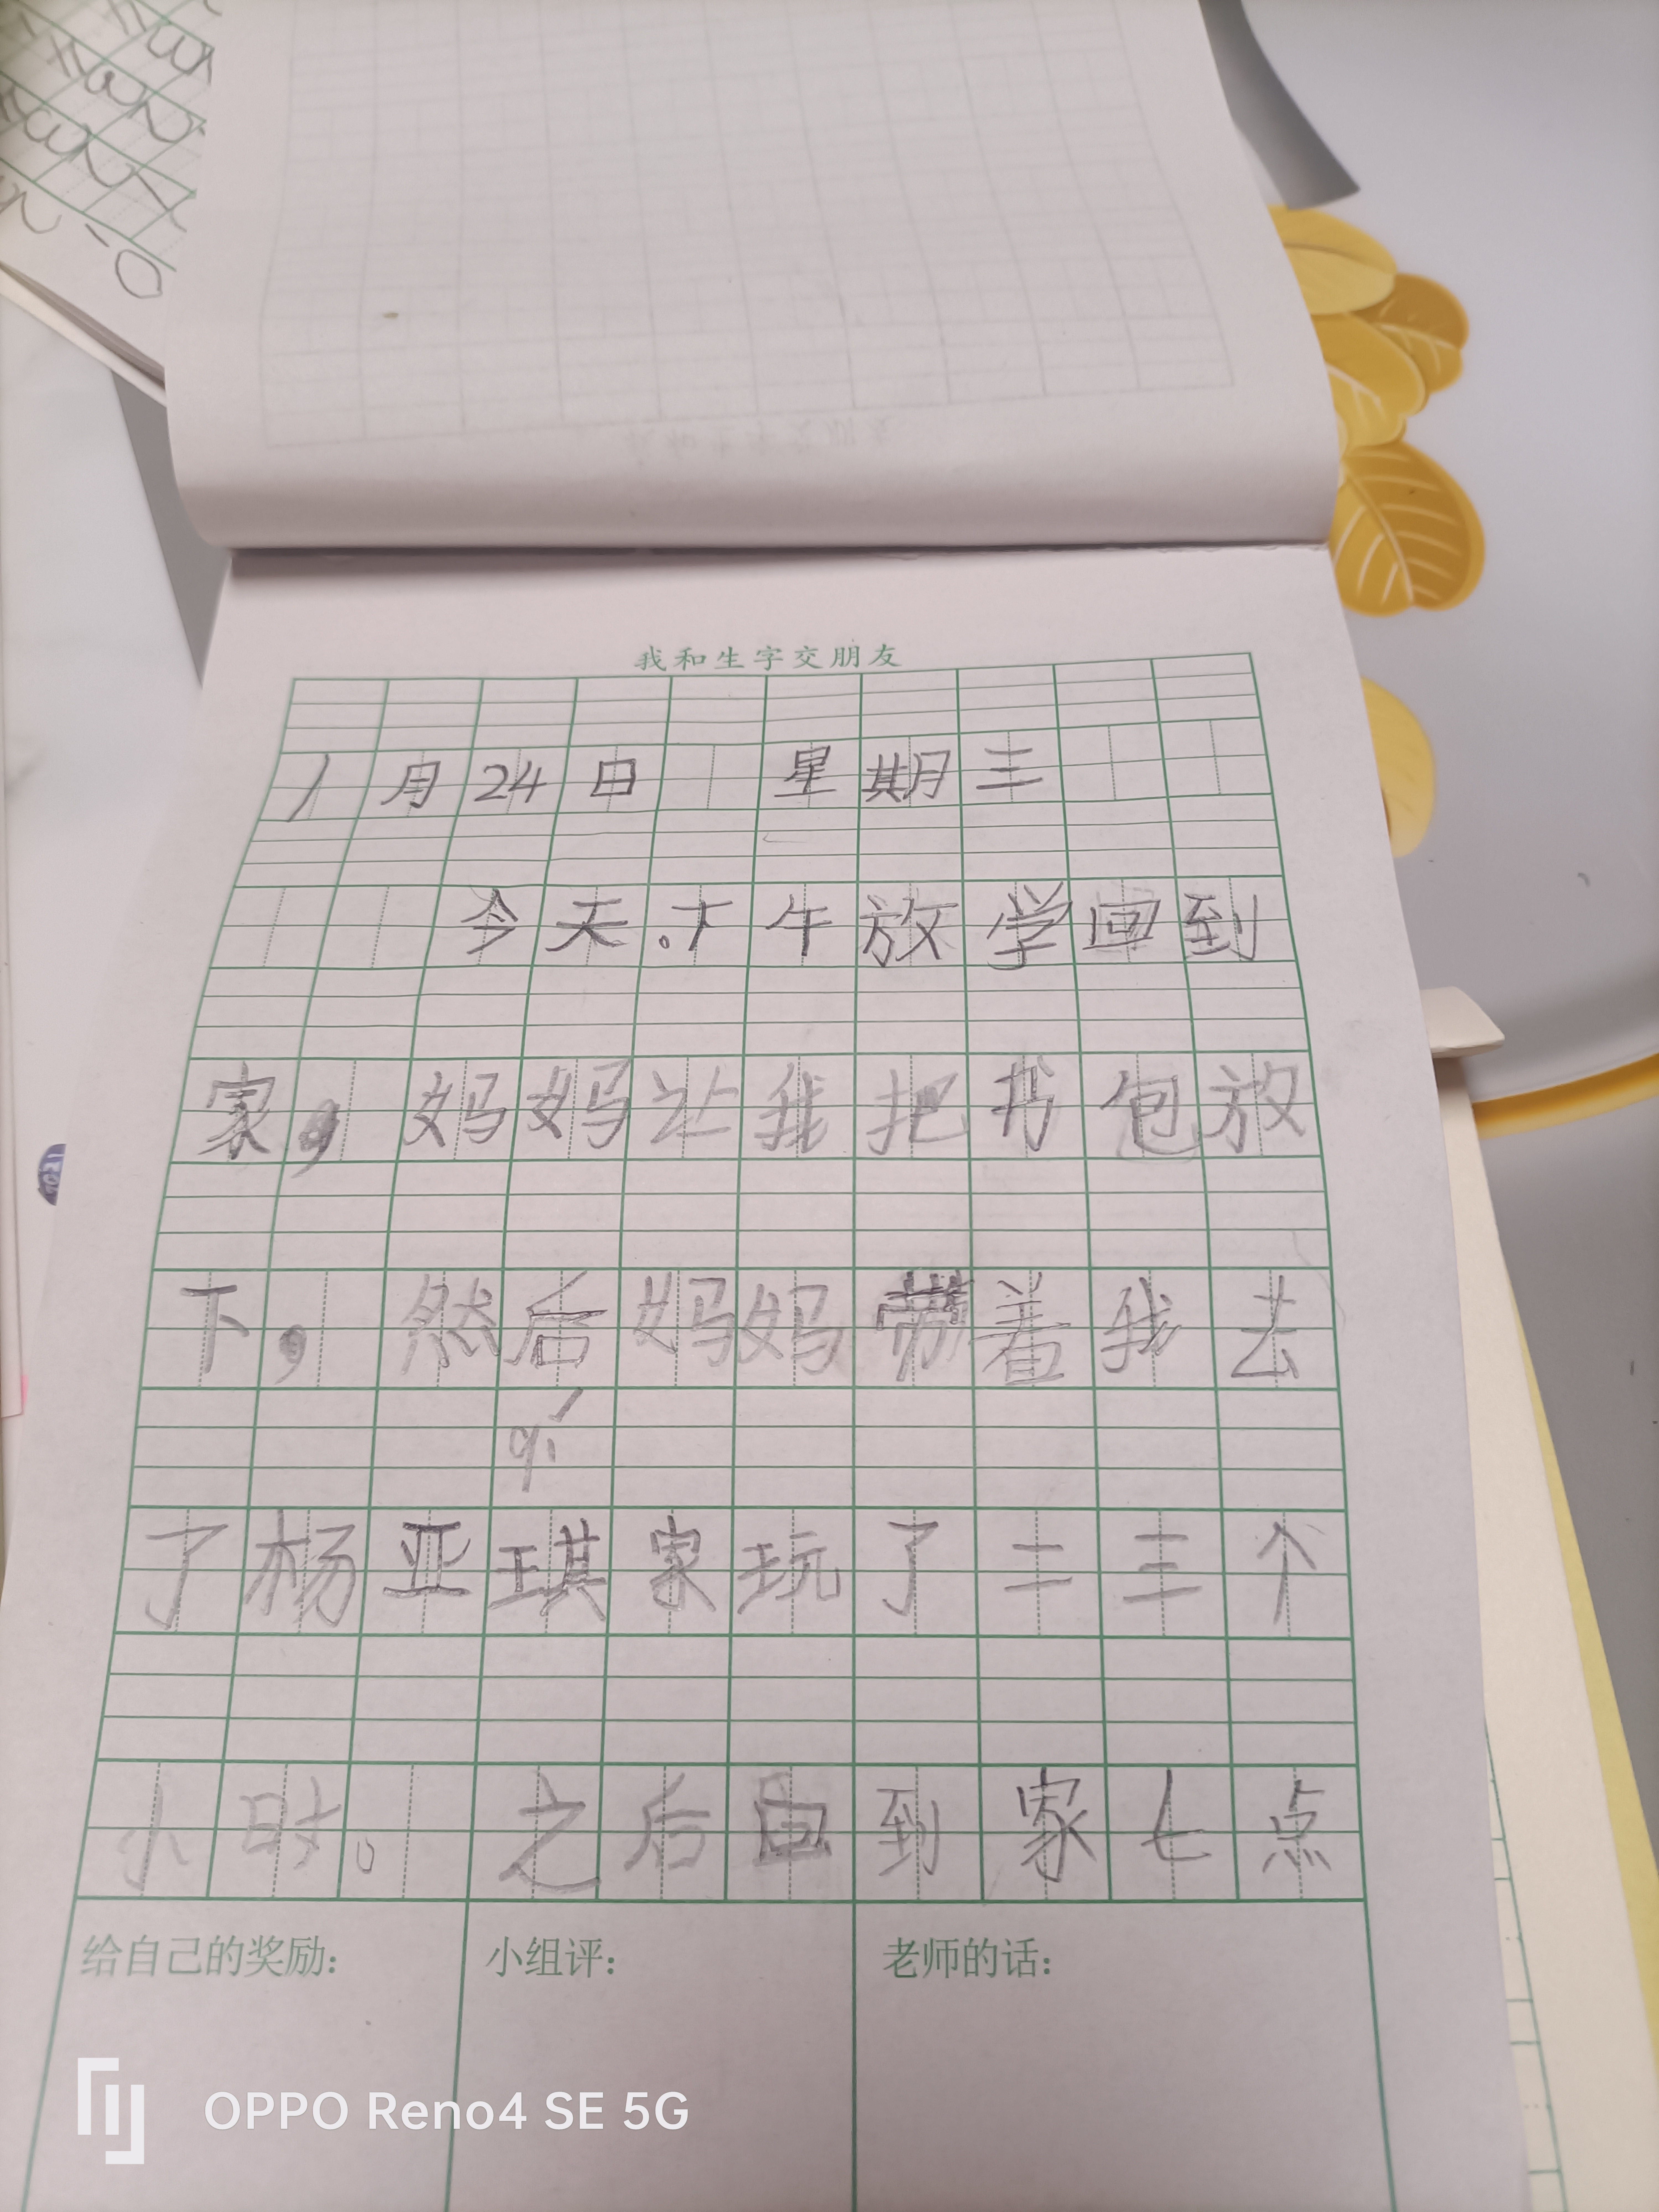 我和生字交朋友
1月24日 星期三
今天。下午放学回到
家，妈妈让我把书包放
下，然后妈妈带着我去
qí
了杨亚琪家玩了二三个
小时。之后回到家七点
给自己的奖励：
小组评：
老师的话：
OPPO Reno4 SE 5G